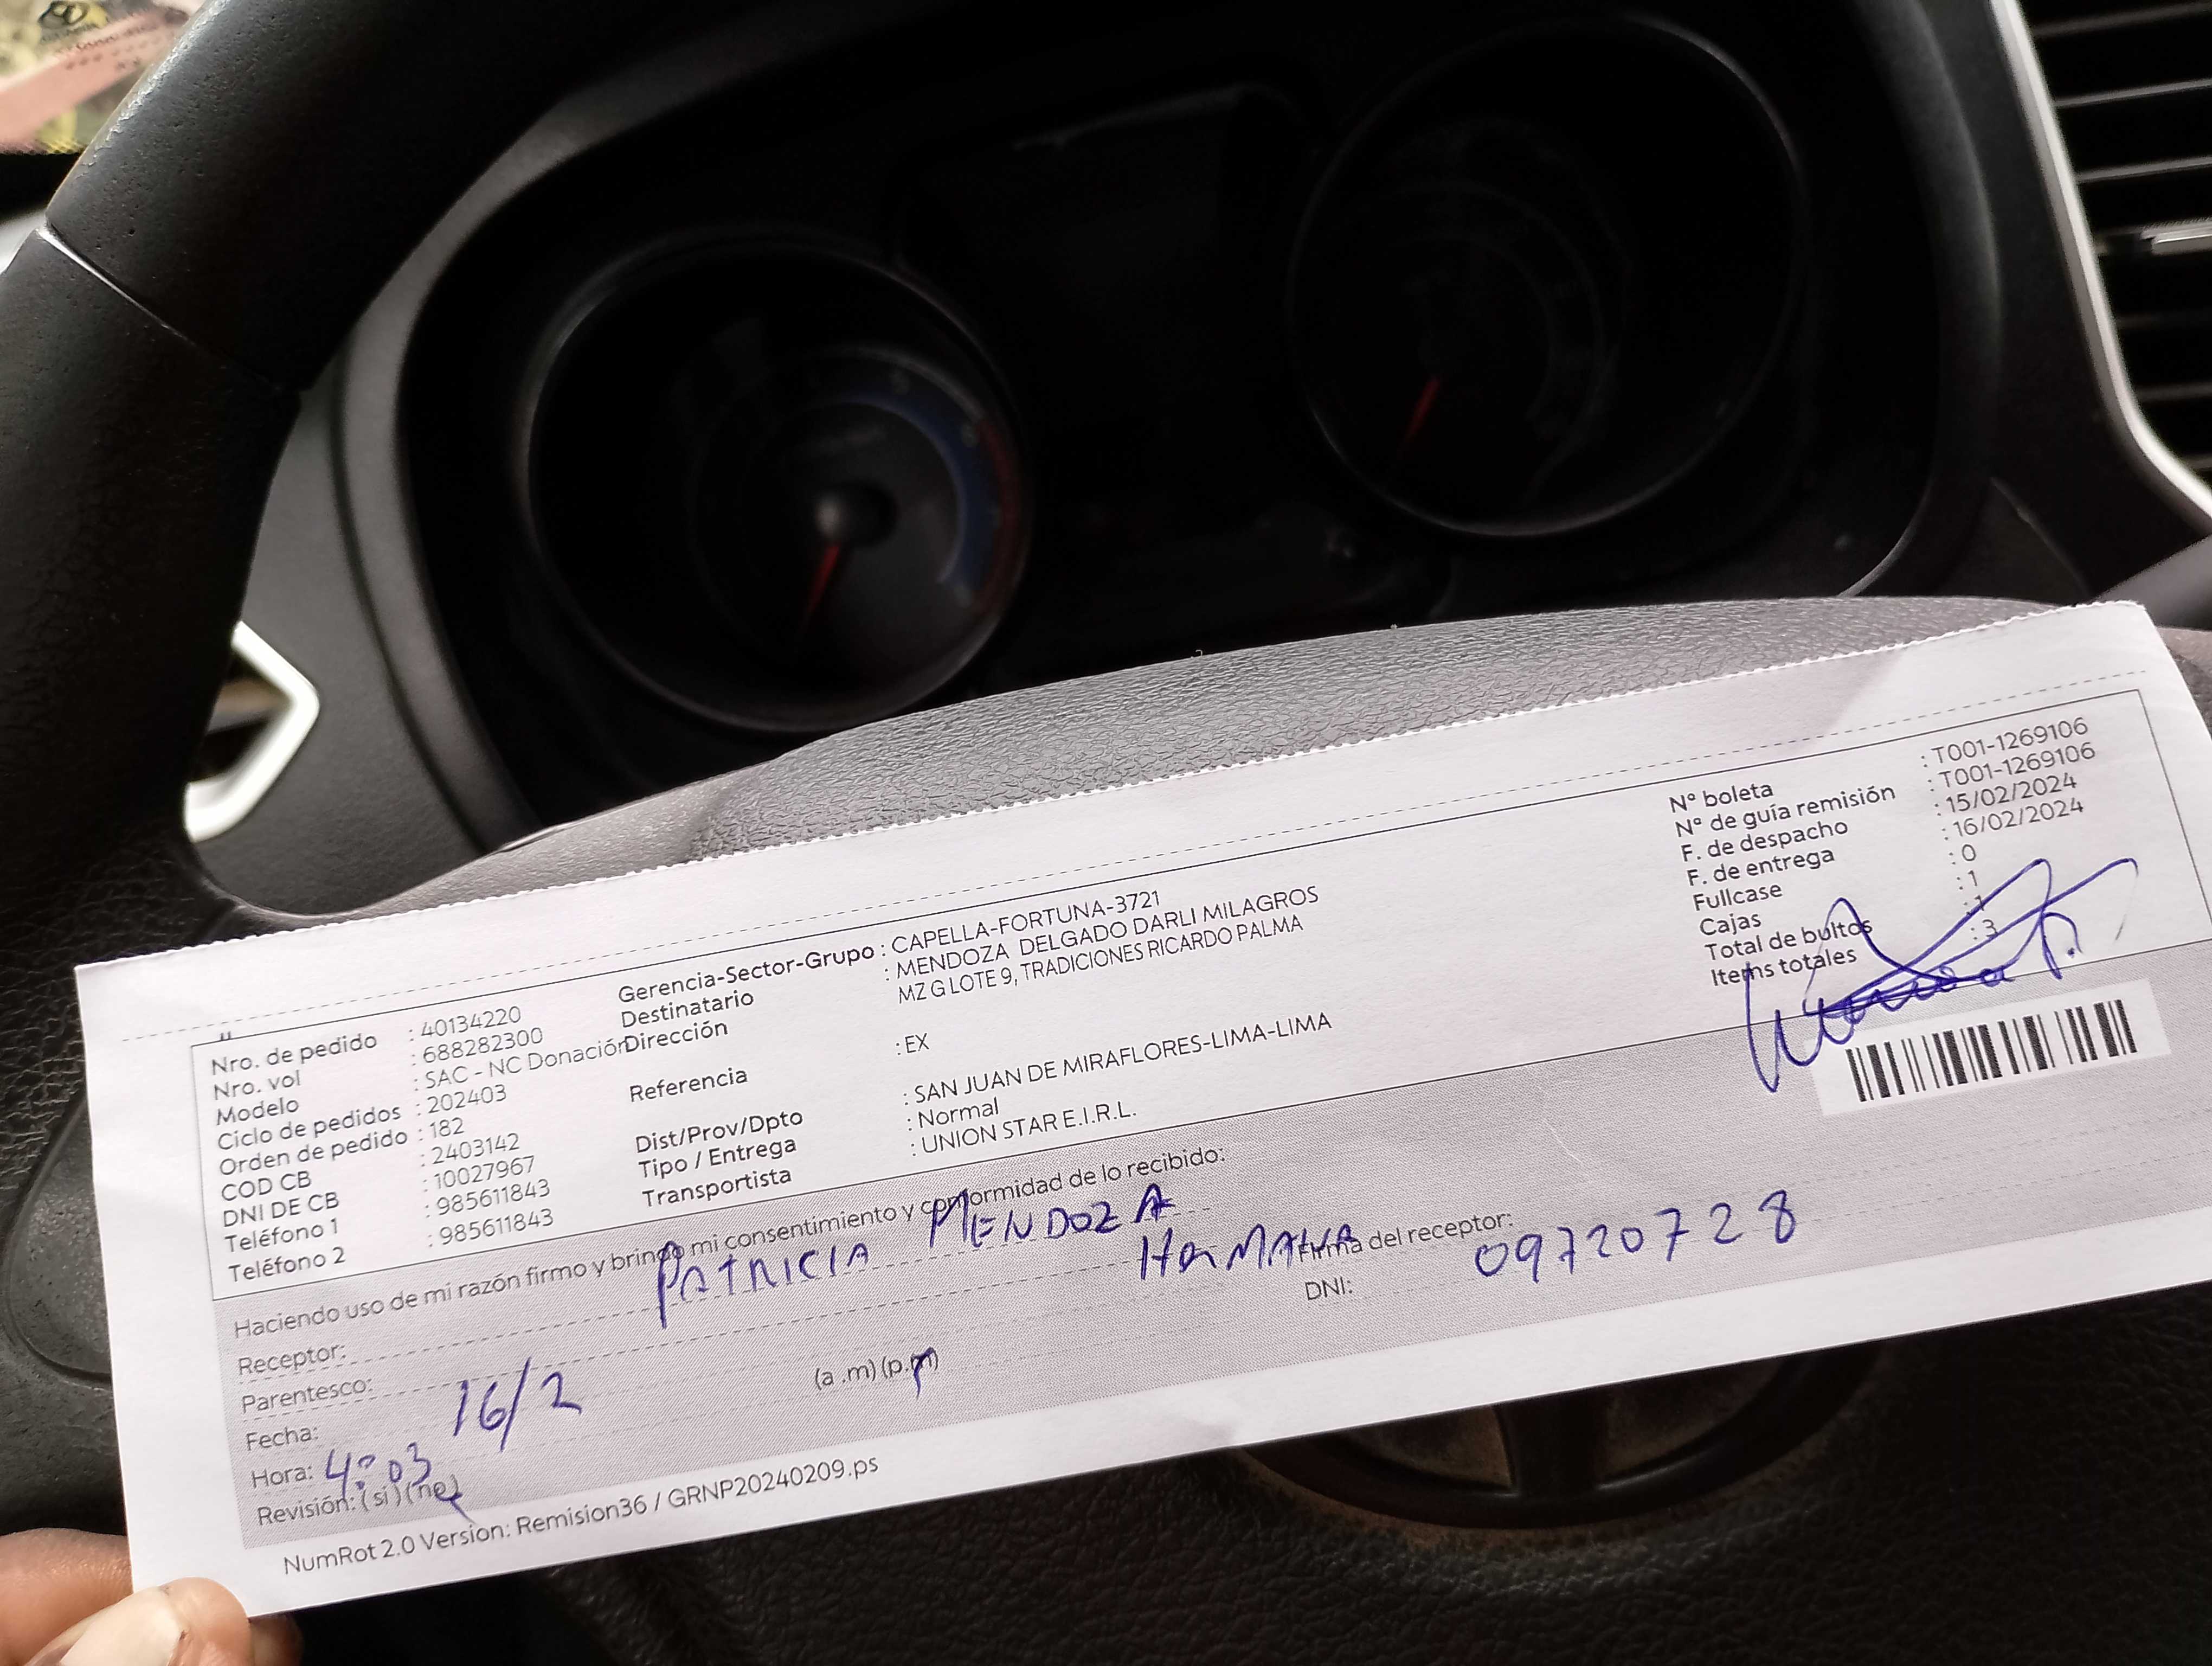 Nro. de pedido : 40134220
Nro. vol : 688282300
Modelo : SAC - NC Donación
Ciclo de pedidos : 202403
Orden de pedido : 182
COD CB : 2403142
DNI DE CB : 10027967
Teléfono 1 : 985611843
Teléfono 2 : 985611843
Gerencia-Sector-Grupo : CAPELLA-FORTUNA-3721
Destinatario : MENDOZA DELGADO DARLI MILAGROS
Dirección MZ G LOTE 9, TRADICIONES RICARDO PALMA
Referencia : EX
Dist/Prov/Dpto : SAN JUAN DE MIRAFLORES-LIMA-LIMA
Tipo / Entrega : Normal
Transportista : UNION STAR E.I.R.L.
N° boleta : T001-1269106
N° de guía remisión : T001-1269106
F. de despacho : 15/02/2024
F. de entrega : 16/02/2024
Fullcase : 0
Cajas : 1
Total de bultos : 1
Items totales : 3
Haciendo uso de mi razón firmo y brindo mi consentimiento y conformidad de lo recibido:
Receptor: PATRICIA MENDOZA
Parentesco: HERMANA
Firma del receptor:
Fecha: 16/2
DNI: 09720728
Hora: 4:03 (a .m) (p.m)
Revisión: (si) (no)
NumRot 2.0 Version: Remision36 / GRNP20240209.ps